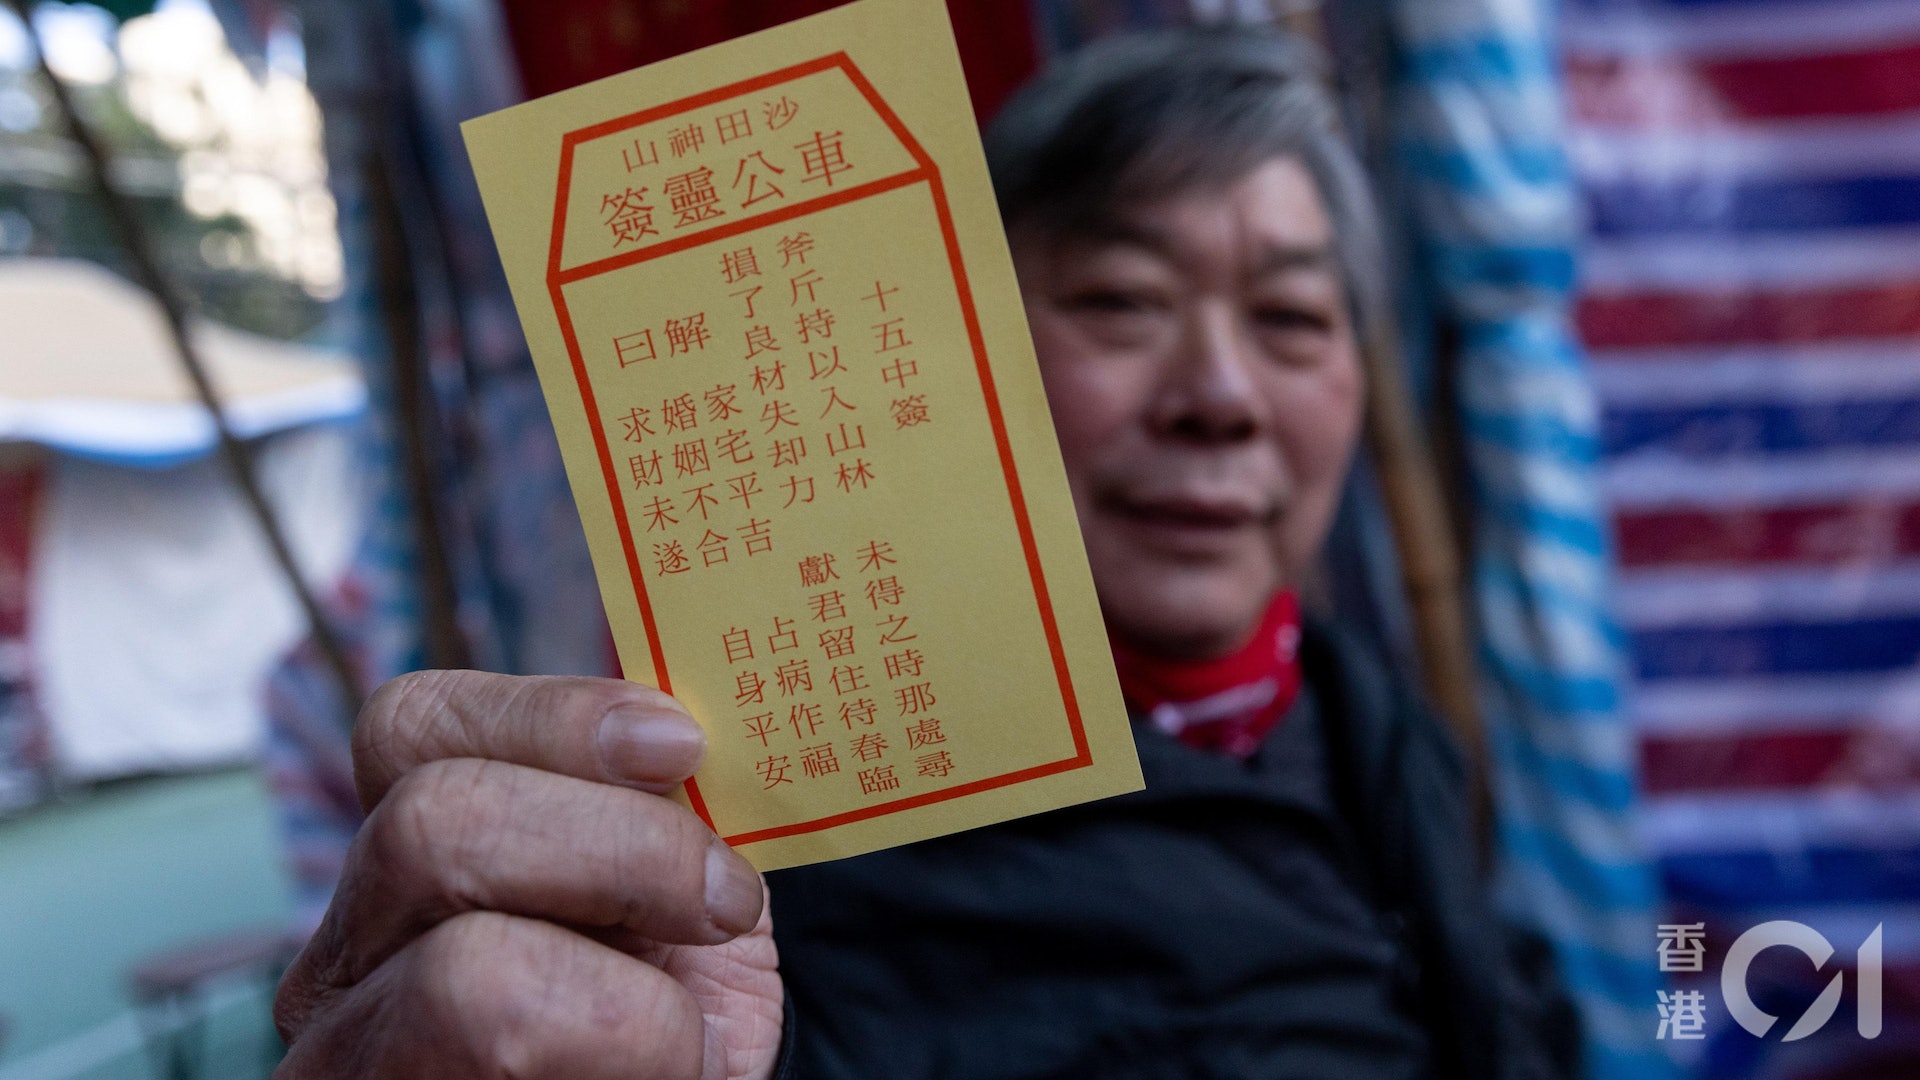 沙田神山
車公靈簽
十五中簽
斧斤持以入山林
未得之時那處尋
損了良材失却力
獻君留住待春臨
解曰
家宅平吉
占病作福
婚姻不合
自身平安
求財未遂
香港01